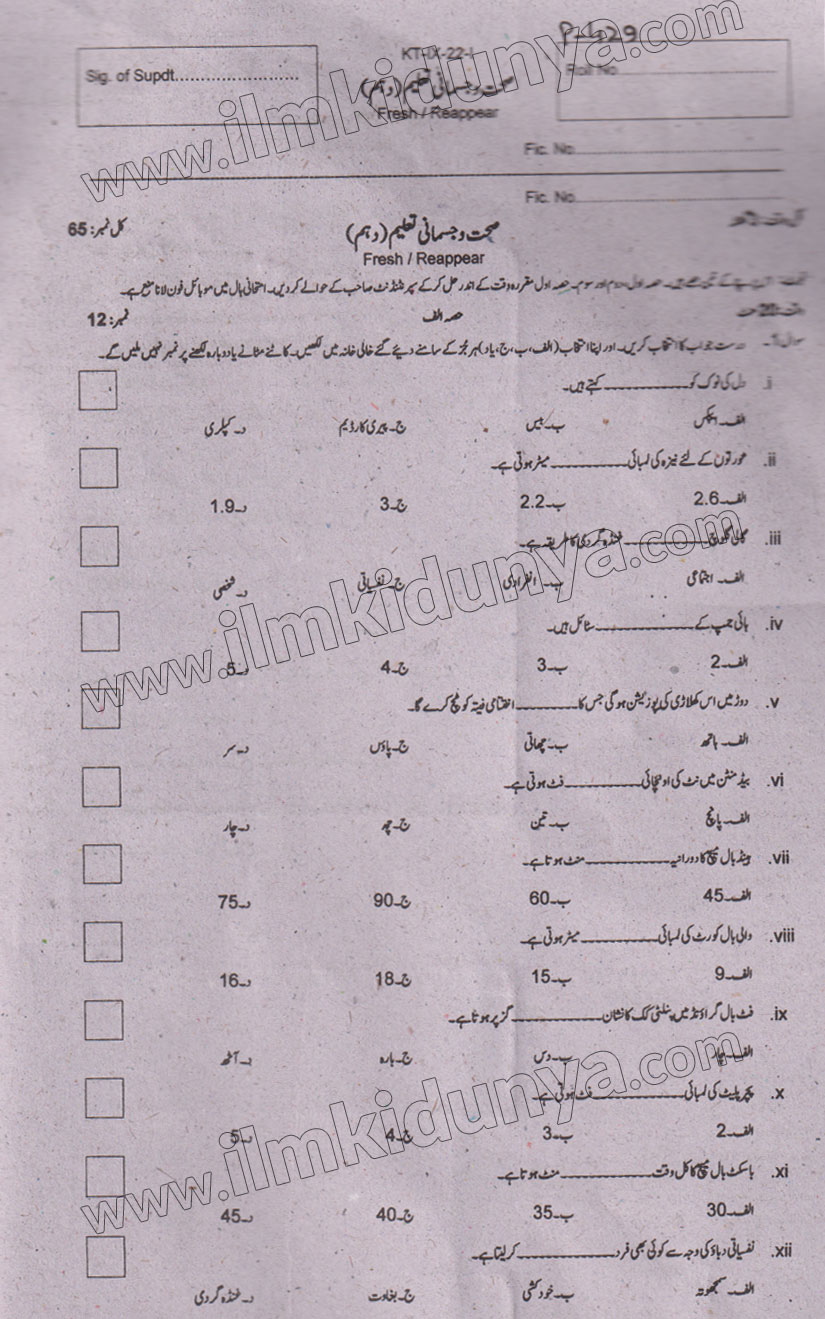 P-4329
KT-IX-22-I
Sig. of Supdt........................
صحت و جسمانی تعلیم (دہم)
Roll No
Fresh / Reappear
Fic. No
Fic. No
کل نمبر: 65
صحت و جسمانی تعلیم (دہم)
Fresh / Reappear
حصہ اول، دوم اور سوم۔ حصہ اول مقررہ وقت کے اندر حل کر کے سپرنٹنڈنٹ صاحب کے حوالے کر دیں۔ امتحانی ہال میں موبائل فون لانا منع ہے۔
وقت: 20 منٹ حصہ الف نمبر: 12
سوال 1۔ درست جواب کا انتخاب کریں۔ اور اپنا انتخاب (الف، ب، ج، یا د) ہر جُز کے سامنے دیئے گئے خالی خانہ میں لکھیں۔ کاٹنے مٹانے یا دوبارہ لکھنے پر نمبر نہیں ملیں گے۔
i. دل کی نوک کو __________ کہتے ہیں۔
الف۔ اپیکس ب۔ بیس ج۔ پیری کارڈیم د۔ کیپلری
ii. عورتوں کے لئے نیزہ کی لمبائی __________ میٹر ہوتی ہے۔
الف۔ 2.6 ب۔ 2.2 ج۔ 3 د۔ 1.9
iii. گالی گلوچ __________ غنڈہ گردی کا طریقہ ہے۔
الف۔ اجتماعی ب۔ انفرادی ج۔ نفسیاتی د۔ شخصی
iv. ہائی جمپ کے __________ سٹائل ہیں۔
الف۔ 2 ب۔ 3 ج۔ 4 د۔ 5
v. دوڑ میں اس کھلاڑی کی پوزیشن ہوگی جس کا __________ اختتامی فیتہ کو ٹچ کرے گا۔
الف۔ ہاتھ ب۔ چھاتی ج۔ پاؤں د۔ سر
vi. بیڈمنٹن میں نٹ کی اونچائی __________ فٹ ہوتی ہے۔
الف۔ پانچ ب۔ تین ج۔ چھ د۔ چار
vii. ہینڈ بال میچ کا دورانیہ __________ منٹ ہوتا ہے۔
الف۔ 45 ب۔ 60 ج۔ 90 د۔ 75
viii. والی بال کورٹ کی لمبائی __________ میٹر ہوتی ہے۔
الف۔ 9 ب۔ 15 ج۔ 18 د۔ 16
ix. فٹ بال گراؤنڈ میں پنلٹی کک کا نشان __________ گز پر ہوتا ہے۔
الف۔ چار ب۔ دس ج۔ بارہ د۔ آٹھ
x. پچر پلیٹ کی لمبائی __________ فٹ ہوتی ہے۔
الف۔ 2 ب۔ 3 ج۔ 4 د۔ 5
xi. باسکٹ بال میچ کا کل وقت __________ منٹ ہوتا ہے۔
الف۔ 30 ب۔ 35 ج۔ 40 د۔ 45
xii. نفسیاتی دباؤ کی وجہ سے کوئی بھی فرد __________ کر لیتا ہے۔
الف۔ سمجھوتہ ب۔ خودکشی ج۔ بغاوت د۔ غنڈہ گردی
www.ilmkidunya.com
www.ilmkidunya.com
www.ilmkidunya.com